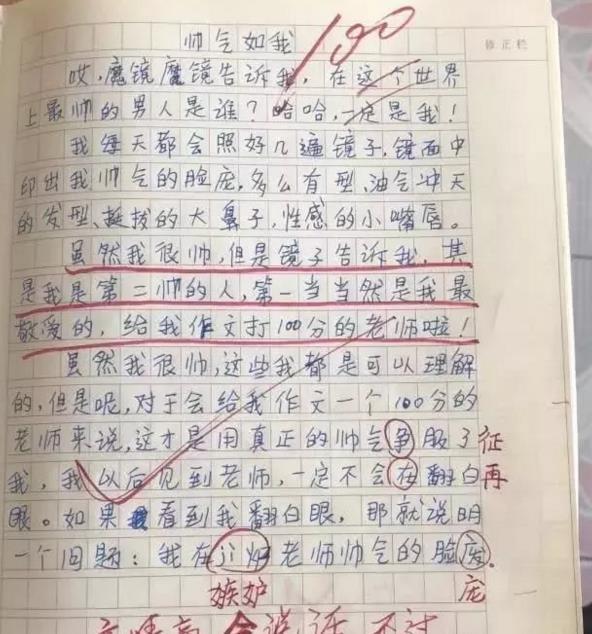 帅气如我
100
修正栏
哎,魔镜魔镜告诉我,在这个世界
上最帅的男人是谁?哈哈,一定是我!
我每天都会照好几遍镜子,镜面中
印出我帅气的脸庞,多么有型、油气冲天
的发型、挺拔的大鼻子,性感的小嘴唇。
虽然我很帅,但是镜子告诉我,其
是我是第二帅的人,第一当当然是我最
敬爱的,给我作文打100分的老师啦!
虽然我很帅,这些我都是可以理解
的,但是呢,对于会给我作文一个100分的
老师来说,这才是用真正的帅气争服了征
我,我以后见到老师,一定不会在翻白再
眼。如果看到我翻白眼,那就说明
一个问题:我在 老师帅气的脸
嫉妒 庞
会说话 不过